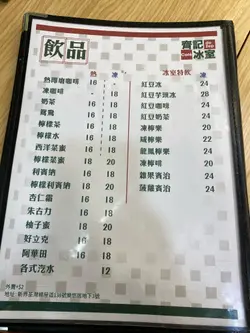 飲品
齊記
冰室
熱 凍
熱檸啡咖啡 16 -
凍咖啡 - 18
奶茶 16 18
鴛鴦 16 18
檸檬茶 16 18
檸檬水 16 18
西洋菜蜜 16 18
檸檬菜蜜 18 20
利賓納 16 18
檸檬利賓納 18 20
杏仁霜 16 18
朱古力 16 18
柚子蜜 18 20
好立克 16 18
阿華田 16 18
各式汽水 12
冰室特飲 凍
紅豆冰 24
紅豆芋頭冰 26
紅豆咖啡 24
紅豆奶茶 24
凍檸樂 20
咸檸樂 22
龍鳳檸樂 24
雜果賓治 24
菠蘿賓治 24
外賣+$2